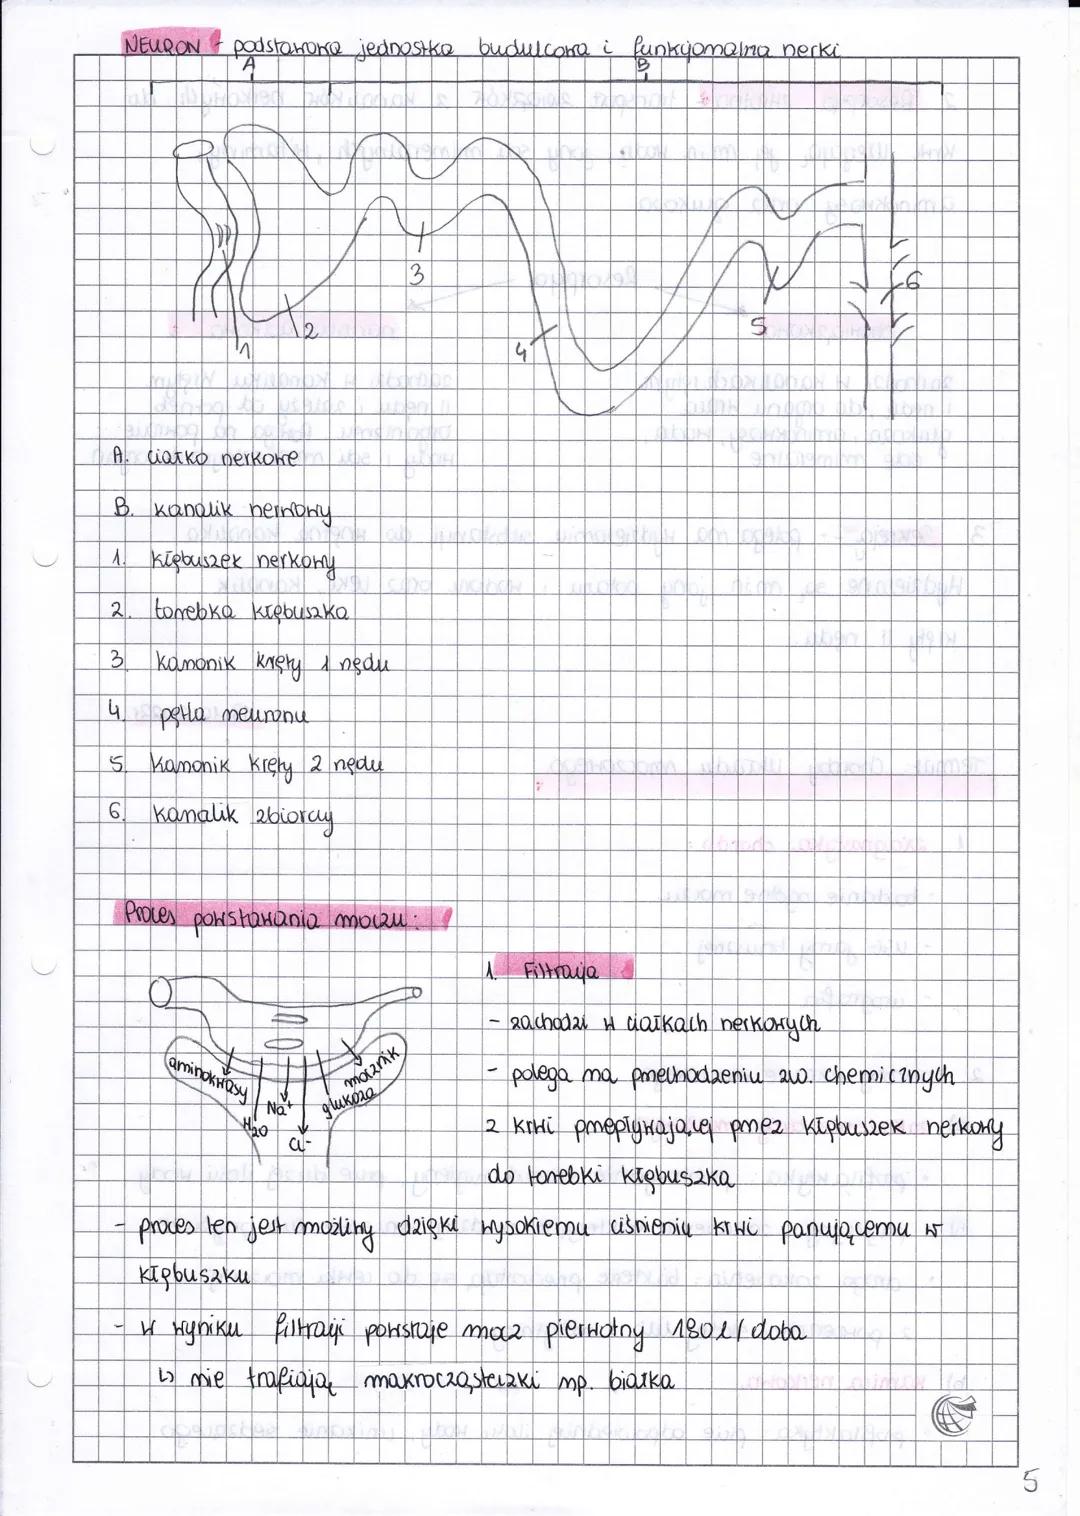 NEURON - podstawowa jednostka budulcowa i funkcjonalna nerki
A B
3
6
5
2
1
4
A. ciałko nerkowe
B. kanalik nerkowy
1. kłębuszek nerkowy
2. torebka kłębuszka
3. kanonik kręty 1 rzędu
4. pętla neuronu
5. kanonik kręty 2 rzędu
6. kanalik zbiorczy
Proces powstawania moczu:
1. Filtracja
- zachodzi w ciałkach nerkowych
- polega na przechodzeniu zw. chemicznych
z krwi przepływającej przez kłębuszek nerkowy
do torebki kłębuszka
aminokwasy
H2O
Na+
Cl-
glukoza
mocznik
- proces ten jest możliwy dzięki wysokiemu ciśnieniu krwi panującemu w
kłębuszku
- w wyniku filtracji powstaje mocz pierwotny 180l/doba
↳ nie trafiają makrocząsteczki np. białka
5